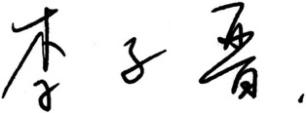 李子晋.